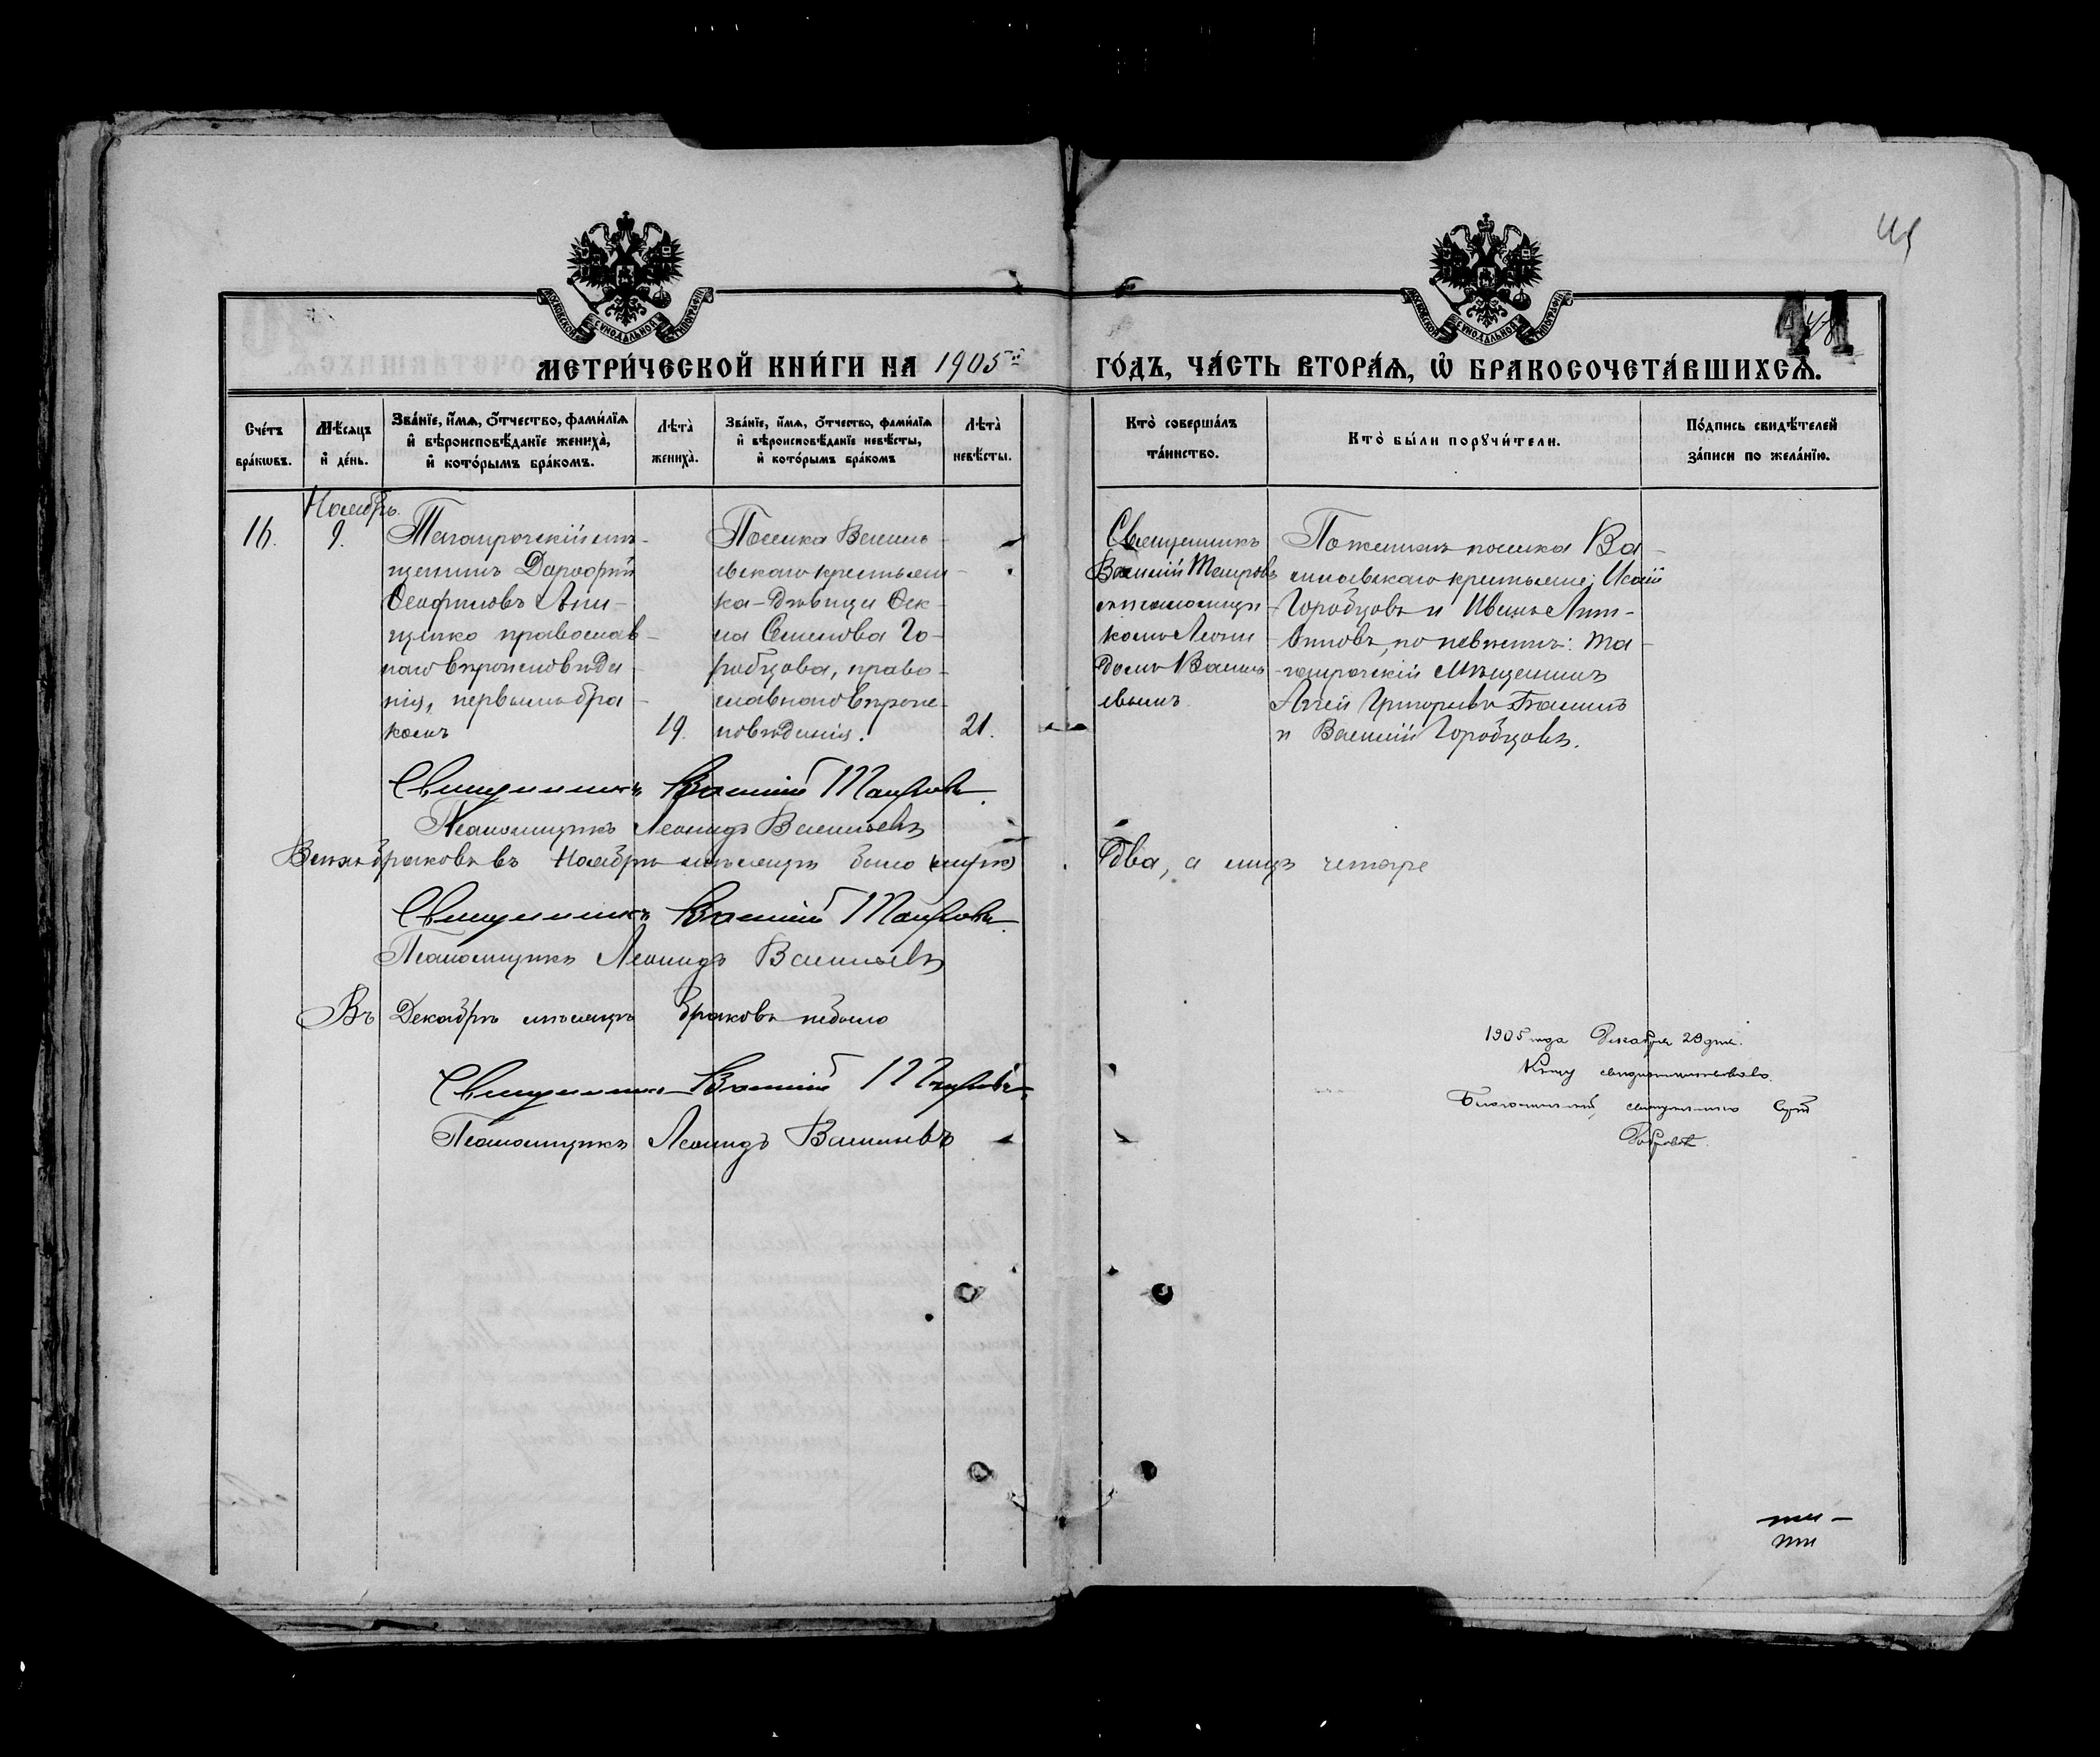 41
МОСКОВСКОЙ СѴНОДАЛЬНОЙ ТИПОГРАФІИ
МОСКОВСКОЙ СѴНОДАЛЬНОЙ ТИПОГРАФІИ
МЕТРИ́ЧЕСКОЙ КНИ́ГИ НА 1905й
ГО́ДЪ, ЧА́СТЬ ВТОРА́Ѧ, Ѡ҆ БРАКОСОЧЕТА́ВШИХСѦ.
Сче́тъ бра́кѡвъ.
Мѣ́сяцъ и҆ де́нь.
Зва́нїе, и҆́мѧ, о҆́тчество, фами́лїѧ
и҆ вѣроисповѣ́данїе жениха̀,
и҆ кото́рымъ бра́комъ.
Лѣта̀ жениха̀.
Зва́нїе, и҆́мѧ, о҆́тчество, фами́лїѧ
и҆ вѣроисповѣ́данїе невѣ́сты,
и҆ кото́рымъ бра́комъ
Лѣта̀ невѣ́сты.
Кто̀ соверша́лъ
та́инство.
Кто̀ бы́ли порꙋчи́тели.
По́дпись свидѣ́телей
за́писи по жела́нїю.
Ноябрь.
16.
9.
Таганрогскій мѣ-
щанинъ Дорофей
Ѳеофиловъ
щенко православ-
наго вѣроисповѣда-
нія, первымъ бра-
комъ
19.
Поселка Василь-
евскаго крестьян-
ка-дѣвица Ѳек-
ла Семенова Го-
робцова, право-
славнаго вѣроис-
повѣданія.
21.
Священникъ
Василій Таировъ
съ псаломщи-
комъ Леони-
домъ Василь-
евымъ
По женихѣ поселка Ва-
сильевскаго крестьяне: Исаій
Горобцовъ и Иванъ Лит-
виновъ, по невѣстѣ: та-
ганрогскій мѣщанинъ
Григорьевъ
и Василій Горобцовъ.
Священникъ Василій Таировъ.
Псаломщикъ Леонидъ Васильевъ
Всѣхъ браковъ въ Ноябрѣ мѣсяцѣ было
два, а лицъ четыре
Священникъ Василій Таировъ.
Псаломщикъ Леонидъ Васильевъ
Въ Декабрѣ мѣсяцѣ браковъ небыло
Священникъ Василій Таировъ.
Псаломщикъ Леонидъ Васильевъ
1905 года Декабря 29 дня.
Книгу свидѣтельствовалъ
Благочинный, священникъ